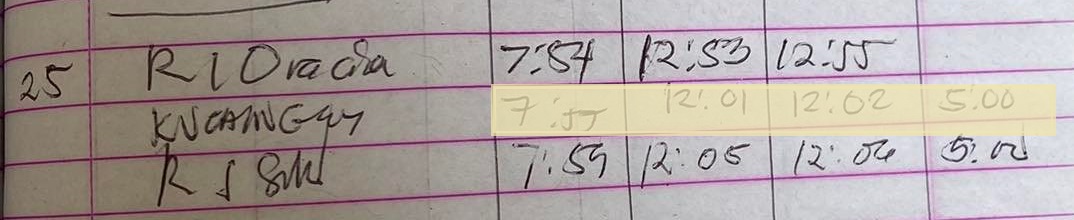 25 R I Oracia 7:54 12:53 12:55
7:55 12:01 12:02 5:00
R J 7:59 12:05 12:06 5:00